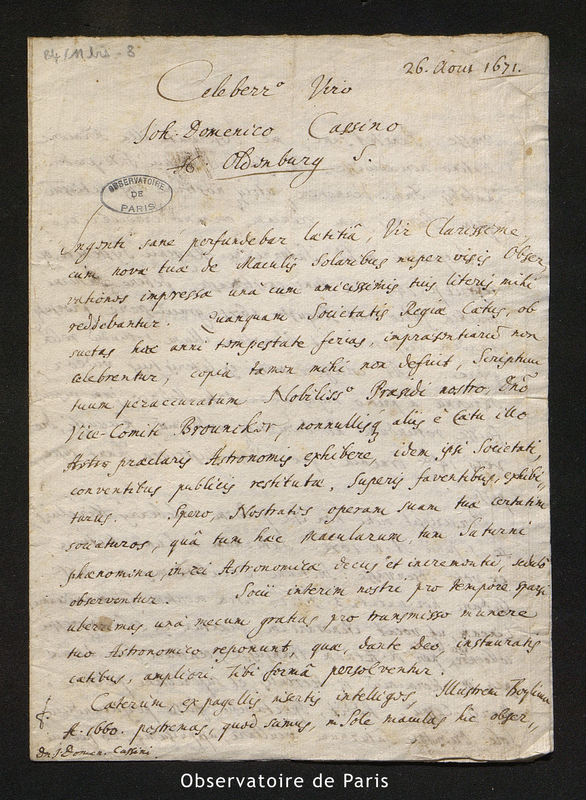 B4/11 bis - 8
26. Aout 1671.
Celeberr.º Viro
Joh. Domenico Cassino
H. Oldenburg S.
OBSERVATOIRE
DE
PARIS
Ingenti sane perfundebar lætitiâ, Vir Clarissime,
cum novæ tuæ de Maculis Solaribus nuper visis Obser-
vationes impressæ unà cum amicissimis tuis literis mihi
reddebantur. Quanquam Societatis Regiæ Cœtus, ob
suetas hac anni tempestate ferias, impræsentiarũ non
celebrentur, copia tamen mihi non defuit, Scriptum
tuum peraccuratum Nobiliss.º Præsidi nostro, Dnõ
Vice-Comiti Brouncker, nonnullisq aliis è Cœtu illo
Astro præclaris Astronomis exhibere, idem ipsi Societati,
conventibus publicis restitutis, Superis faventibus, exhibi,
turus. Spero, Nostrates operam suam tuæ certatim
sociaturos, quâ tum hæc Macularum, tum Saturni
phænomena, in rei Astronomicæ decus et incrementũ, sedulò
observentur. Socii interim nostri pro tempore sparsi
uberrimas unà mecum gratias pro transmisso munere
tuo Astronomico reponunt, quæ, dante Deo, instauratis
cœtibus, ampliori Tibi formâ persolventur.
Cæterùm, ex pagellis insertis intelliges, Illustrem Boylium
A. 1660. postremas, quod scimus, in Sole maculas hic obser,,
Dn. J. Domen. Cassini.
Observatoire de Paris